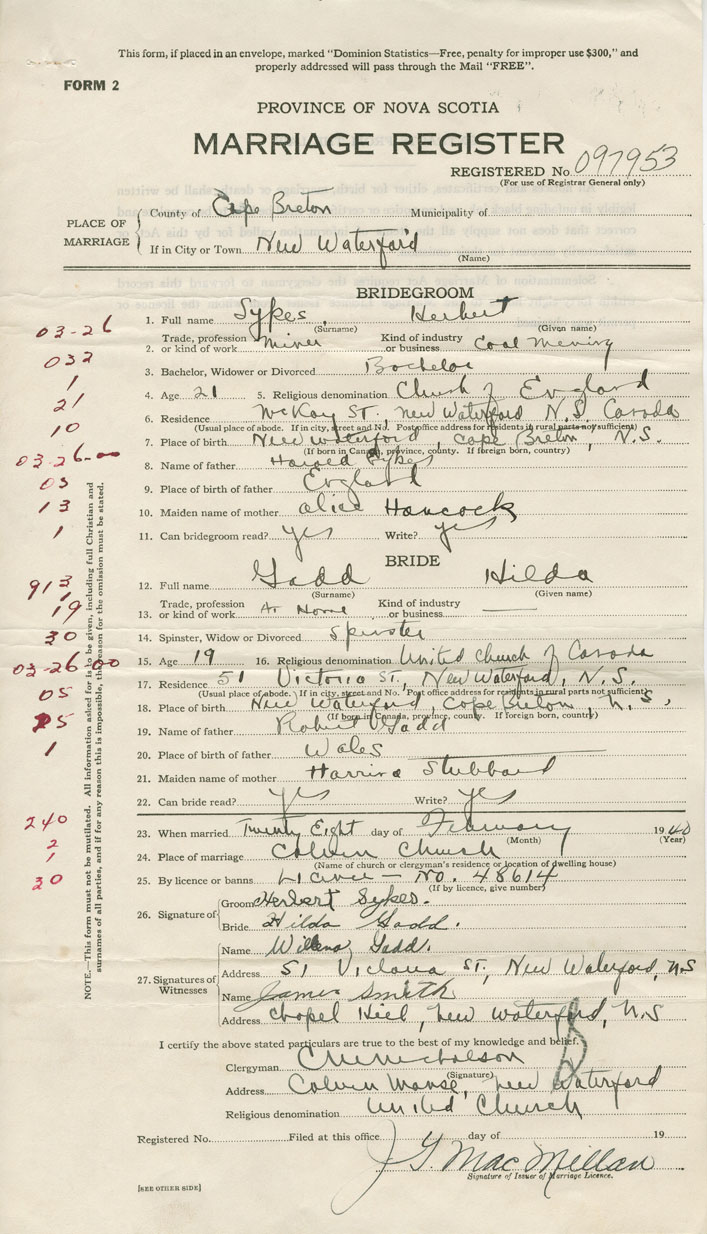 This form, if placed in an envelope, marked "Dominion Statistics—Free, penalty for improper use $300," and
properly addressed will pass through the Mail "FREE".
FORM 2
PROVINCE OF NOVA SCOTIA
MARRIAGE REGISTER
REGISTERED No. 097953
(For use of Registrar General only)
PLACE OF MARRIAGE
County of Cape Breton Municipality of
If in City or Town New Waterford
(Name)
BRIDEGROOM
03-26 1. Full name Sykes, Herbert
(Surname) (Given name)
032 2. Trade, profession or kind of work Miner Kind of industry or business Coal Mening
1 3. Bachelor, Widower or Divorced Bachelor
21 4. Age 21 5. Religious denomination Church of England
10 6. Residence McKay St, New Waterford N.S. Canada
(Usual place of abode. If in city, street and No. Post office address for residents in rural parts not sufficient)
03-26-00 7. Place of birth New Waterford, Cape Breton, N.S.
(If born in Canada, province, county. If foreign born, country)
8. Name of father Harold Sykes
03 9. Place of birth of father England
13 10. Maiden name of mother Alice Hancock
1 11. Can bridegroom read? yes Write? yes
BRIDE
913 12. Full name Gadd Hilda
(Surname) (Given name)
19 13. Trade, profession or kind of work At Home Kind of industry or business —
30 14. Spinster, Widow or Divorced Spinster
03-26-00 15. Age 19 16. Religious denomination United Church of Canada
05 17. Residence 51 Victoria St., New Waterford, N.S.
(Usual place of abode. If in city, street and No. Post office address for residents in rural parts not sufficient)
18. Place of birth New Waterford, Cape Breton, N.S.
(If born in Canada, province, county. If foreign born, country)
15 19. Name of father Robert Gadd
1 20. Place of birth of father Wales
21. Maiden name of mother Stubbard
22. Can bride read? yes Write? yes
240 23. When married Twenty Eight day of February 1940
(Month) (Year)
2 24. Place of marriage Calvin Church
(Name of church or clergyman's residence or location of dwelling house)
1
30 25. By licence or banns Licence — No. 48614
(If by licence, give number)
26. Signature of
Groom Herbert Sykes.
Bride Hilda Gadd.
27. Signatures of Witnesses
Name Willena Gadd.
Address 51 Victoria St, New Waterford, N.S
Name James Smith
Address Chapel Hill, New Waterford, N.S
I certify the above stated particulars are true to the best of my knowledge and belief.
Clergyman C M Nicholson
(Signature)
Address Calvin Manse, New Waterford
Religious denomination United Church
Registered No. Filed at this office day of 19
J G. MacMillan
Signature of Issuer of Marriage Licence.
[SEE OTHER SIDE]
NOTE.—This form must not be mutilated. All information asked for is to be given, including full Christian and
surnames of all parties, and if for any reason this is impossible, the reason for the omission must be stated.